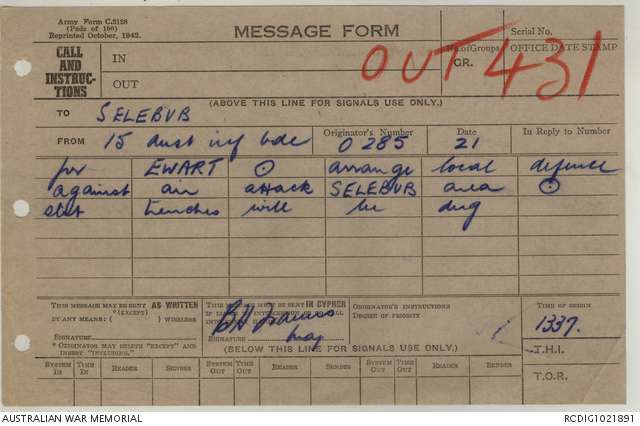 Army Form C.2128
(Pads of 100)
Reprinted October, 1942.
MESSAGE FORM
Serial No.
CALL AND INSTRUCTIONS
IN
OUT
No. of Groups
GR.
OFFICE DATE STAMP
OUT 431
(ABOVE THIS LINE FOR SIGNALS USE ONLY.)
TO SELEBUB
FROM 15 aust inf bde
Originator's Number 0285
Date 21
In Reply to Number
for EWART ⊙ arrange local defence
against air attack SELEBUB area ⊙
slit trenches will be dug
THIS MESSAGE MAY BE SENT AS WRITTEN
*(EXCEPT)
BY ANY MEANS: ( ) WIRELESS
SIGNATURE
* ORIGINATOR MAY DELETE "EXCEPT" AND INSERT "INCLUDING."
THIS MESSAGE MUST BE SENT IN CYPHER
SIGNATURE
Maj
ORIGINATOR'S INSTRUCTIONS
DEGREE OF PRIORITY
TIME OF ORIGIN
1337.
T.H.I.
T.O.R.
(BELOW THIS LINE FOR SIGNALS USE ONLY.)
SYSTEM IN TIME IN READER SENDER SYSTEM OUT TIME OUT READER SENDER SYSTEM OUT TIME OUT READER SENDER
AUSTRALIAN WAR MEMORIAL
RCDIG1021891